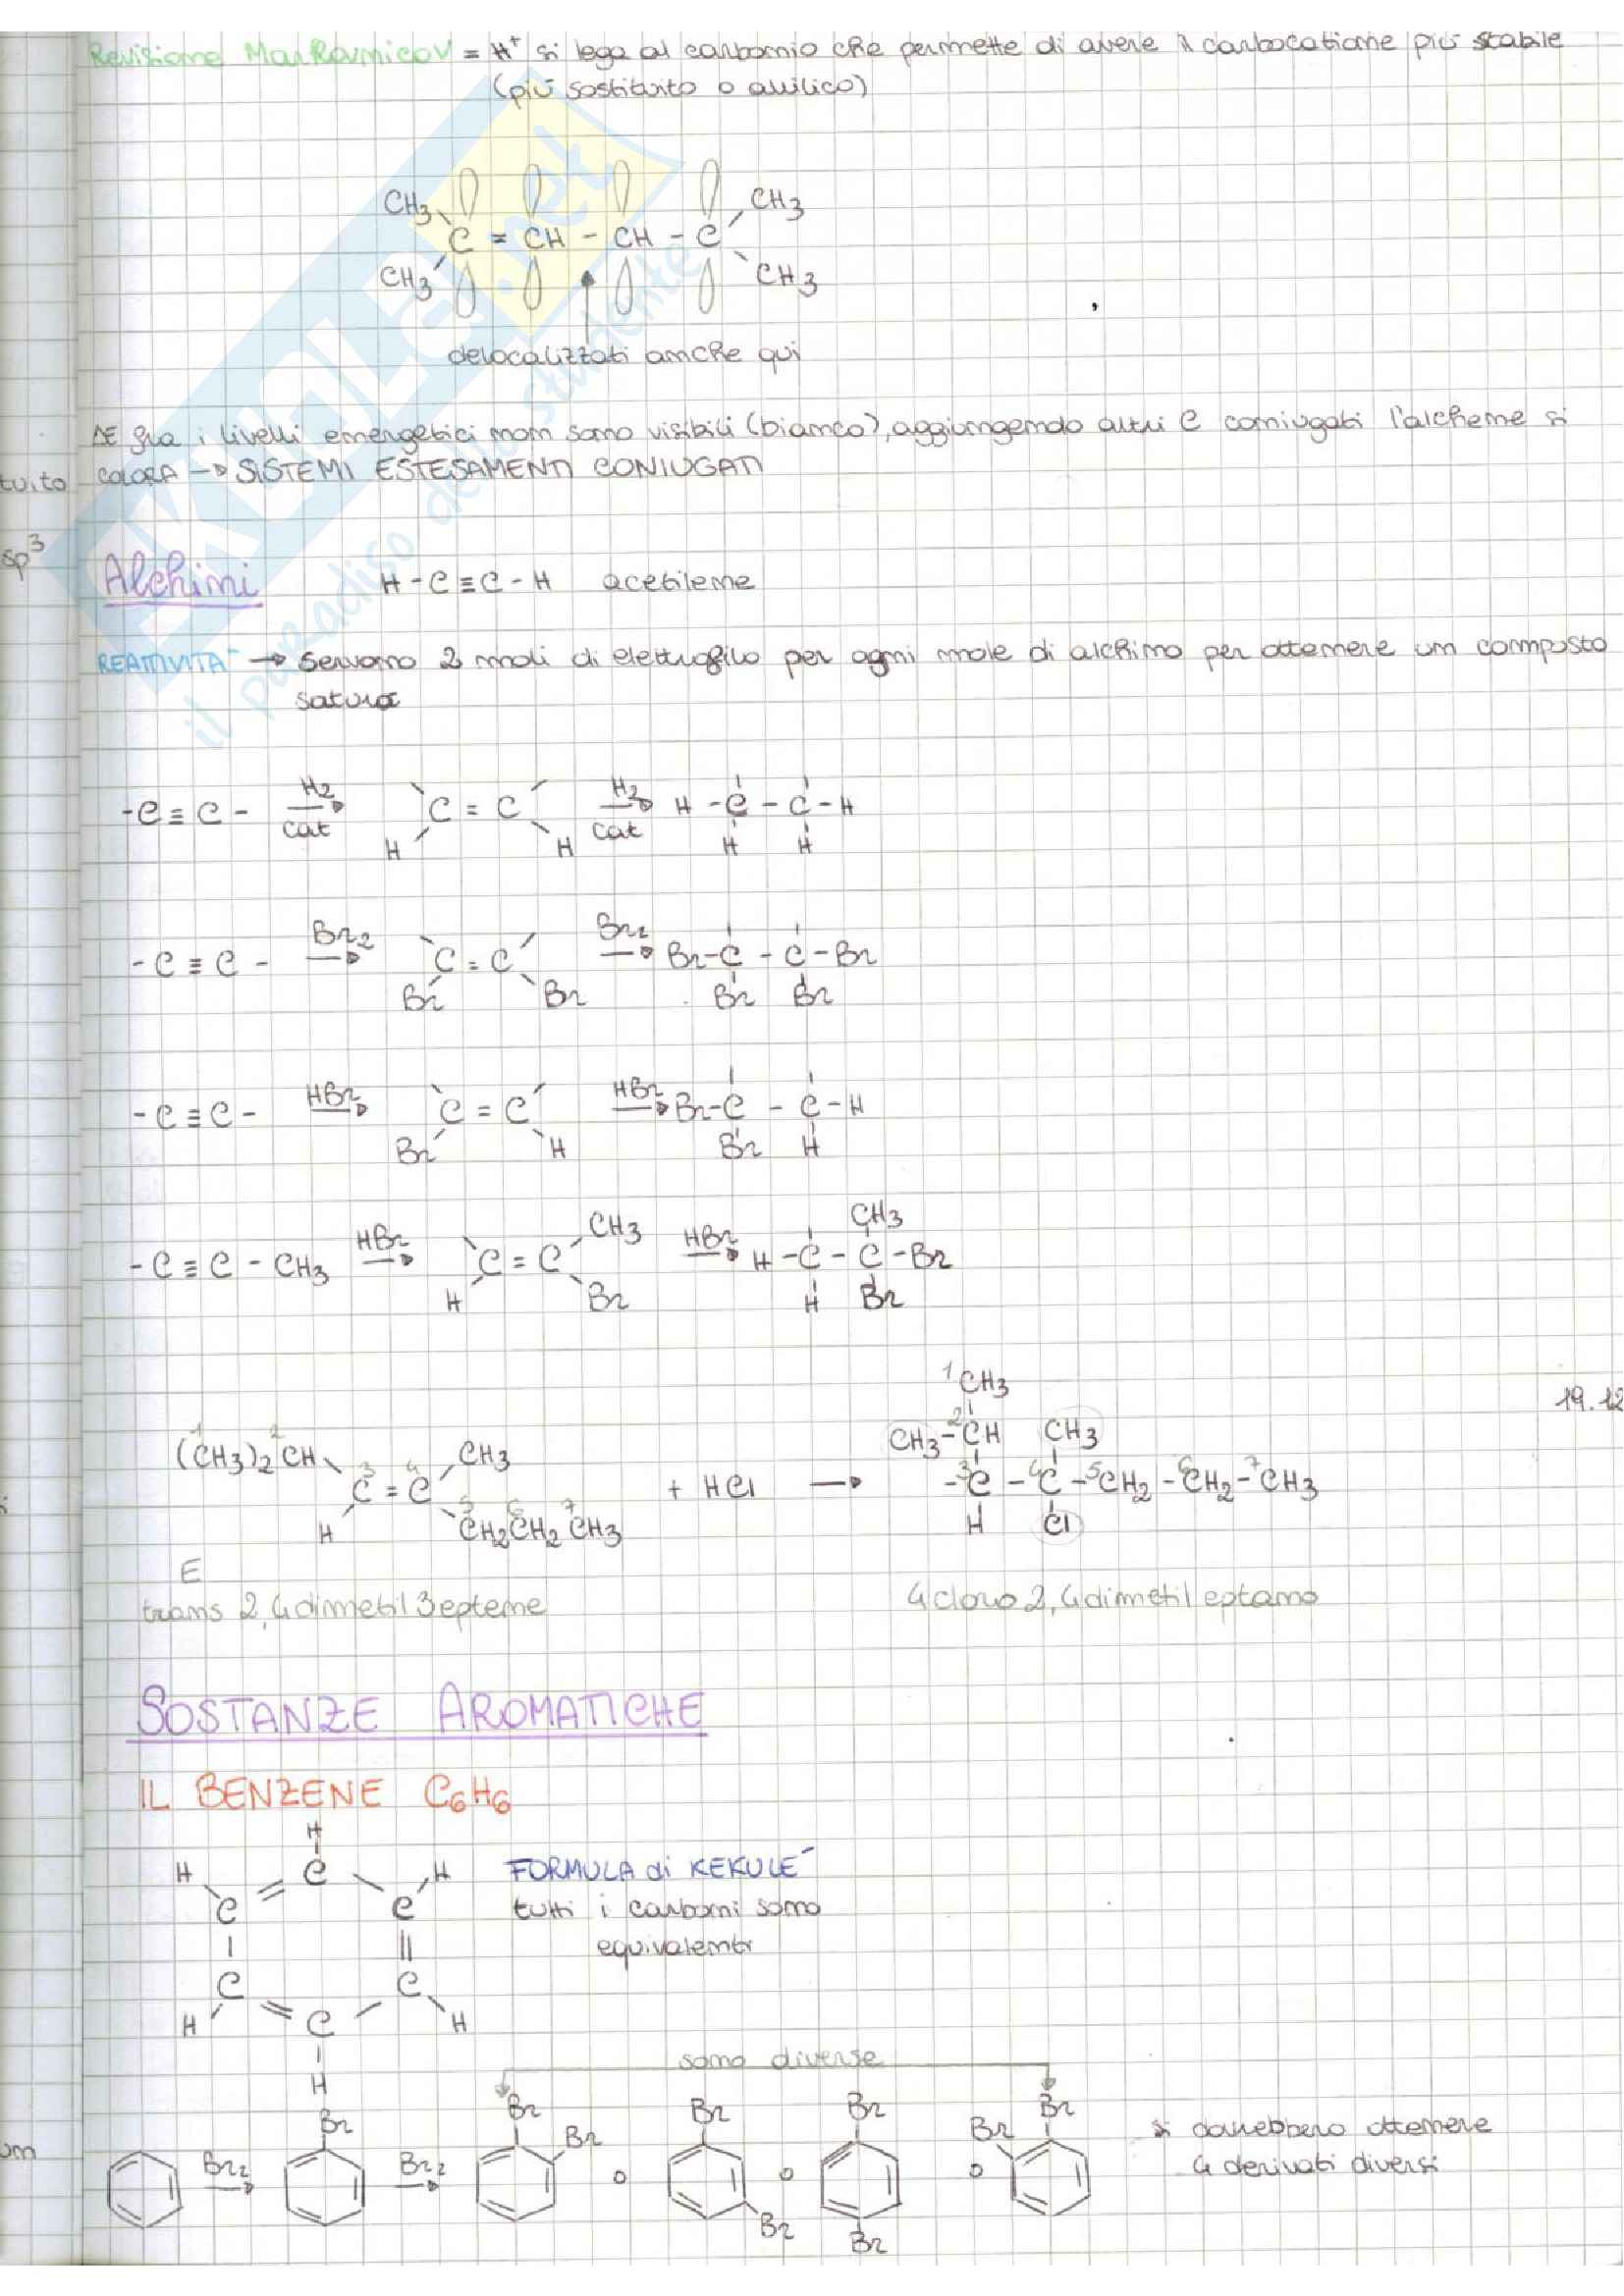 Revisione Markovnicov = H⁺ si lega al carbonio che permette di avere il carbocatione più stabile
(più sostituito o allilico)
CH₃ CH₃
C = CH - CH - C
CH₃ CH₃
delocalizzati anche qui
ΔE fra i livelli energetici non sono visibili (bianco), aggiungendo altri C coniugati l'alchene si
tuito colora → SISTEMI ESTESAMENTI CONIUGATI
sp³
Alchini H-C≡C-H acetilene
REATTIVITÀ → servono 2 moli di elettrofilo per ogni mole di alchino per ottenere un composto
saturo
-C≡C- H₂ cat C=C H H H₂ cat H-C-C-H H H
-C≡C- Br₂ C=C Br Br Br₂ Br-C-C-Br Br Br
-C≡C- HBr C=C Br H HBr Br-C-C-H Br H
-C≡C-CH₃ HBr C=C CH₃ H Br HBr H-C-C-Br CH₃ H Br
19.12
¹CH₃
(¹CH₃)₂²CH CH₃ CH₃-²CH CH₃
³C=⁴C + HCl → -³C-⁴C-⁵CH₂-⁶CH₂-⁷CH₃
H ⁵CH₂⁶CH₂⁷CH₃ H Cl
E
trans 2,4 dimetil 3 eptene 4 cloro 2,4 dimetil eptano
SOSTANZE AROMATICHE
IL BENZENE C₆H₆
H
H C H FORMULA di KEKULÉ
C C tutti i carboni sono
equivalenti
C C
H C H
sono diverse
H
Br Br Br Br Br
Br₂ Br₂ Br o o o Br si dovrebbero ottenere
4 derivati diversi
Br Br
om
SKUOLA.net
il paradiso dello studente